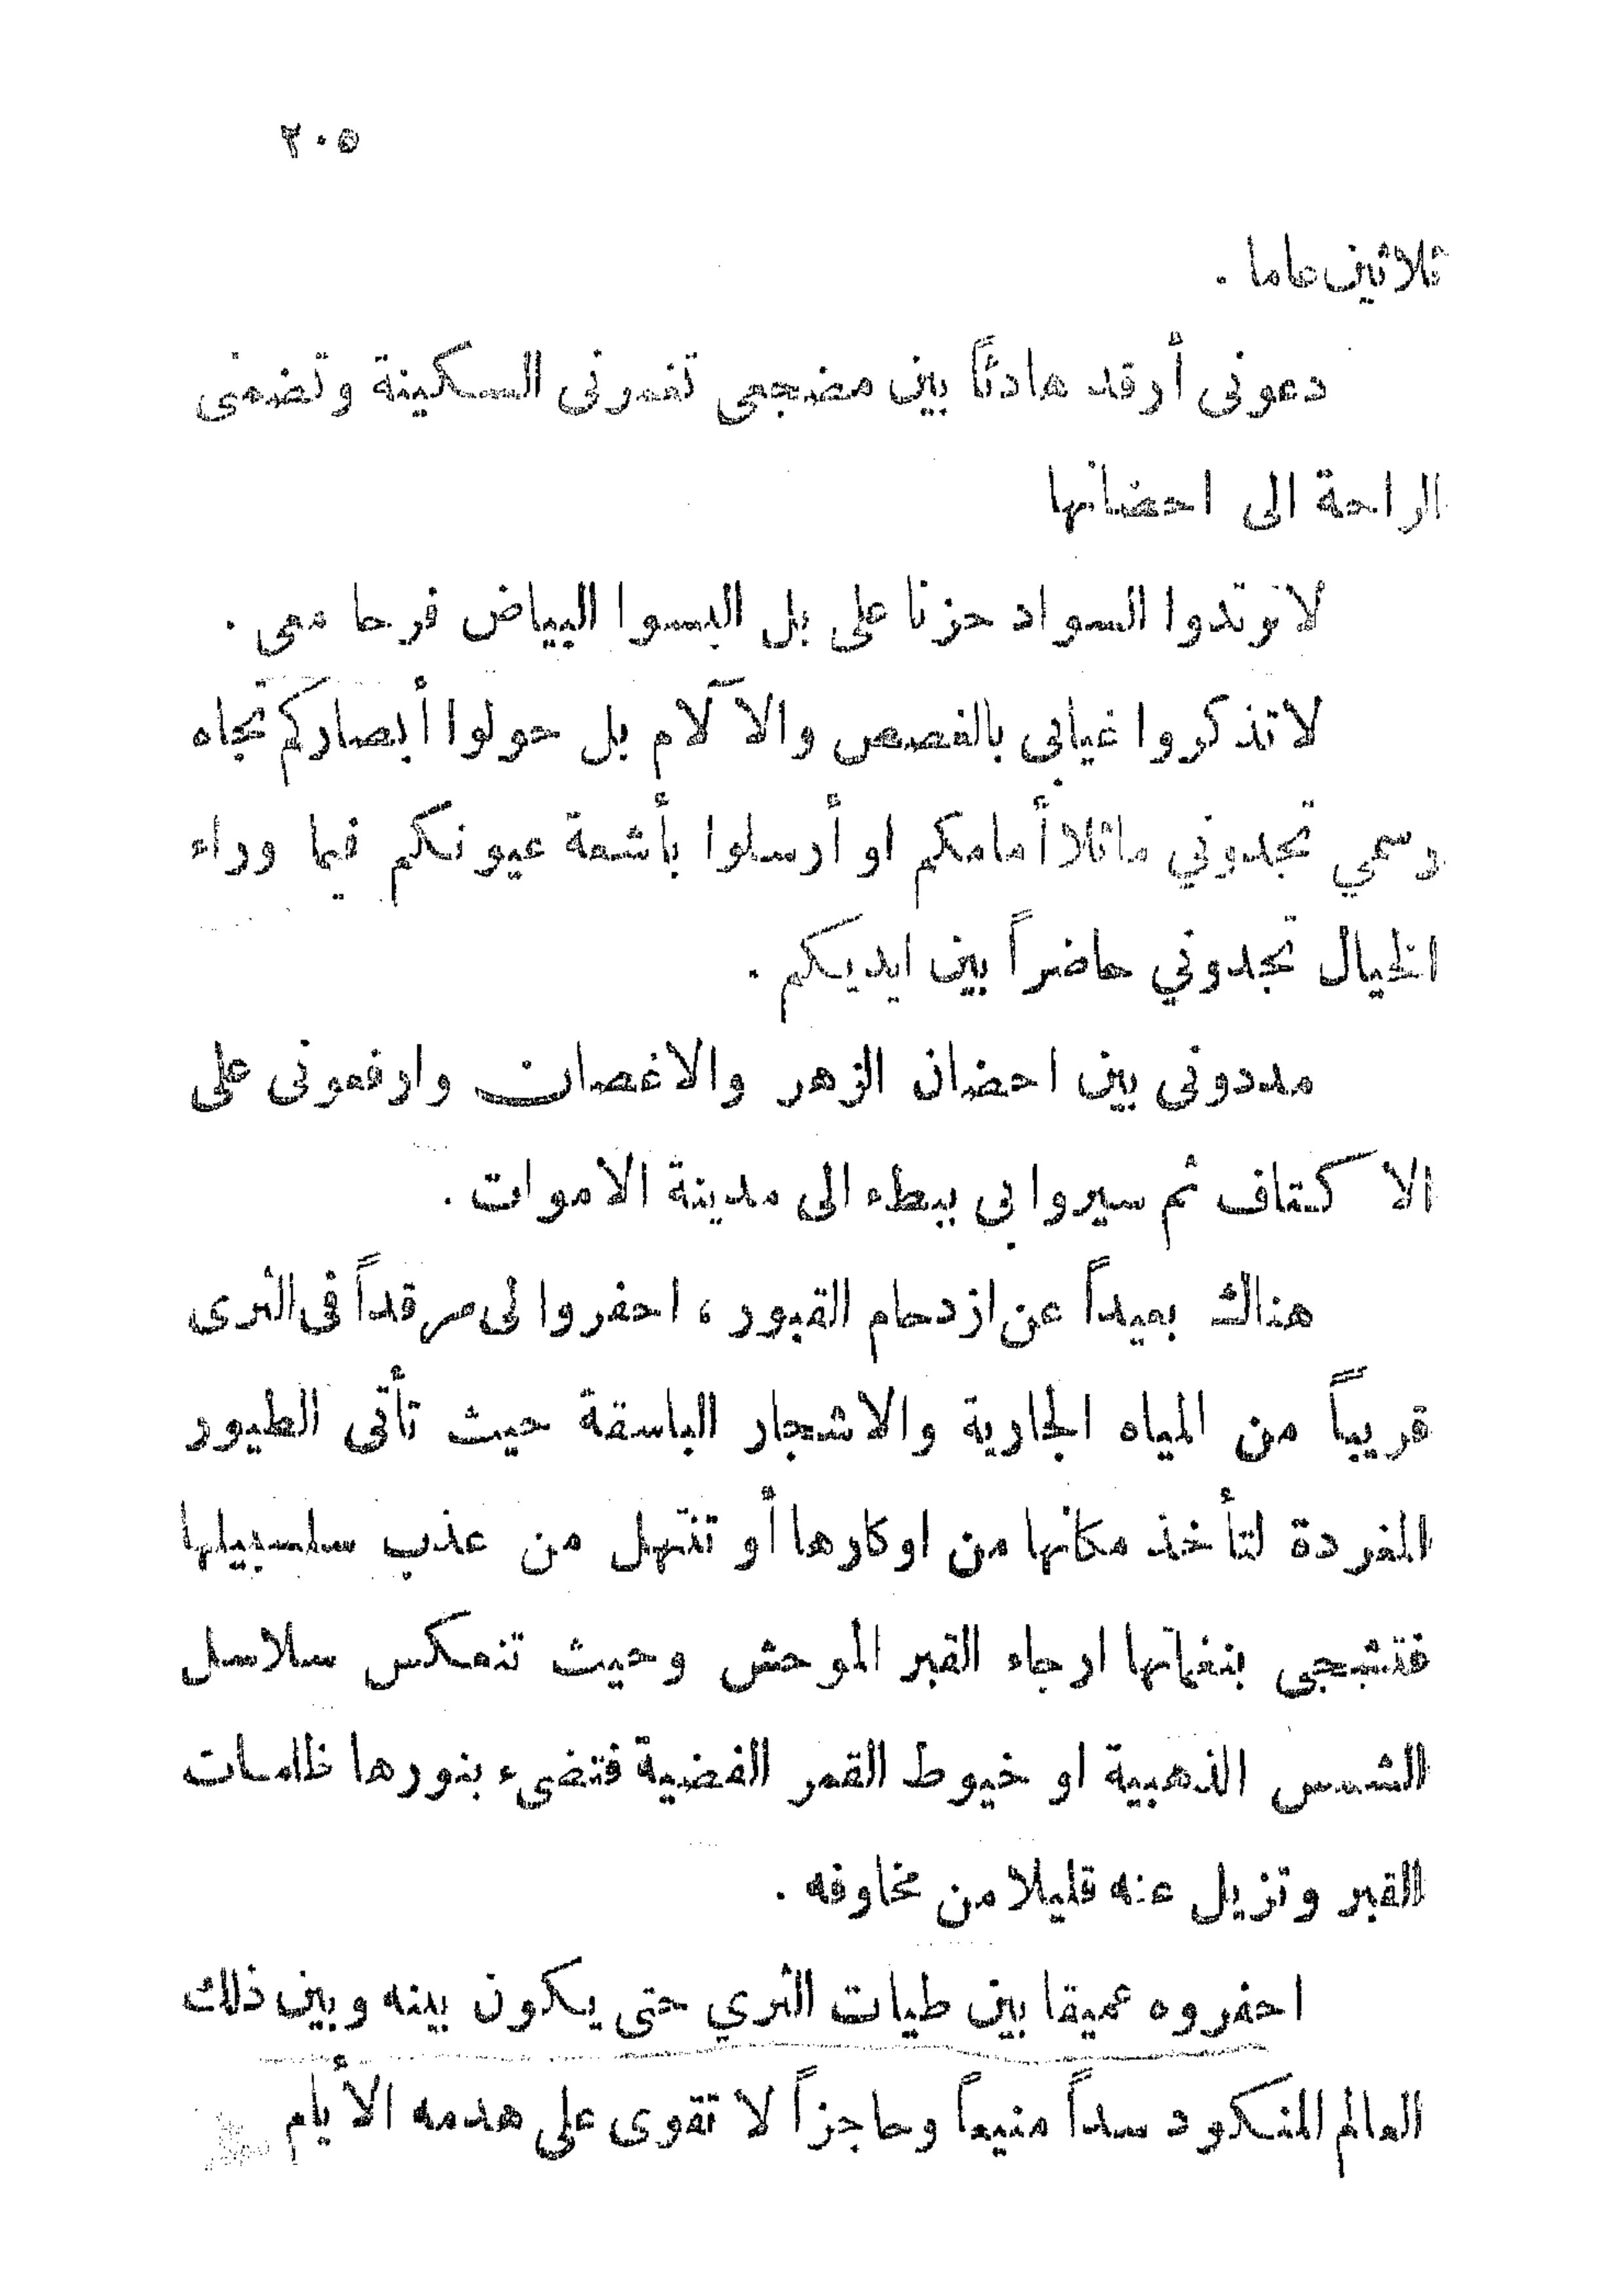 ٢٠٥
ثلاثين عاما .
دعونى أرقد هادئاً بين مضجعى تغمرنى السكينة وتضمنى
الراحة الى احضانها
لا ترتدوا السواد حزنا على بل البسوا البياض فرحا معى .
لا تذكروا غيابى بالغصص والآلام بل حولوا أبصاركم تجاه
رسمي تجدوني ماثلا أمامكم او أرسلوا بأشعة عيونكم فيما وراء
الخيال تجدوني حاضراً بين ايديكم .
مددونى بين احضان الزهر والاغصان وارفعونى على
الاكتاف ثم سيروا بى ببطء الى مدينة الاموات .
هناك بعيداً عن ازدحام القبور ، احفروا لى مرقداً فى الثرى
قريباً من المياه الجارية والاشجار الباسقة حيث تأتى الطيور
المغردة لتأخذ مكانها من اوكارها أو تنتهل من عذب سلسبيلها
فتشجى بنغماتها ارجاء القبر الموحش وحيث تنعكس سلاسل
الشمس الذهبية او خيوط القمر الفضية فتضىء بنورها ظلمات
القبر وتزيل عنه قليلا من مخاوفه .
احفروه عميقا بين طيات الثري حتى يكون بينه وبين ذلك
العالم المنكود سداً منيعاً وحاجزاً لا تقوى على هدمه الأيام